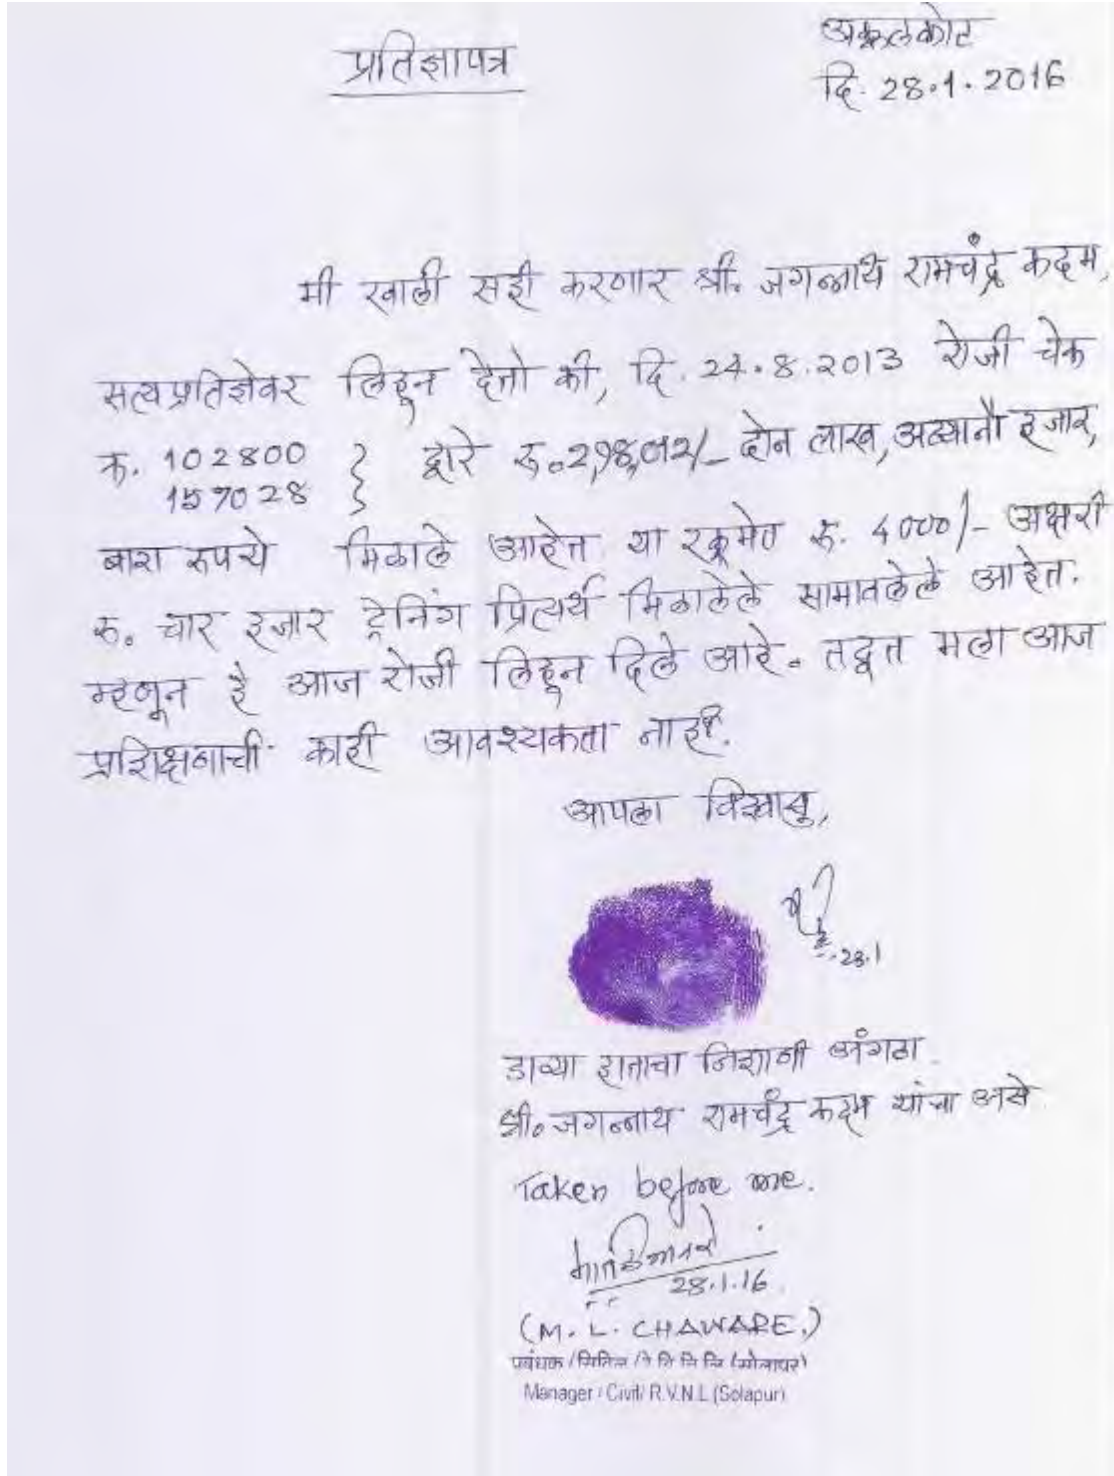 अक्कलकोट
प्रतिज्ञापत्र
दि. 28.1.2016
मी खाली सही करणार श्री. जगन्नाथ रामचंद्र कदम,
सत्यप्रतिज्ञेवर लिहून देतो की, दि. 24.8.2013 रोजी चेक
क्र. 102800 } द्वारे रु. 2,98,012/- दोन लाख, अठ्यानौ हजार,
157028
बारा रुपये मिळाले आहेत या रक्कमेत रु. 4000/- अक्षरी
रु. चार हजार ट्रेनिंग प्रित्यर्थ मिळालेले सामावलेले आहेत.
म्हणून हे आज रोजी लिहून दिले आहे. तद्वत मला आज
प्रशिक्षणाची काही आवश्यकता नाही.
आपला विश्वासु,
28.1
डाव्या हाताचा निशाणी अंगठा
श्री. जगन्नाथ रामचंद्र कदम यांचा असे
Taken before me.
28.1.16
(M. L. CHAWARE.)
प्रबंधक / सिविल / रे वि नि लि (सोलापूर)
Manager / Civil / R.V.N.L (Solapur)